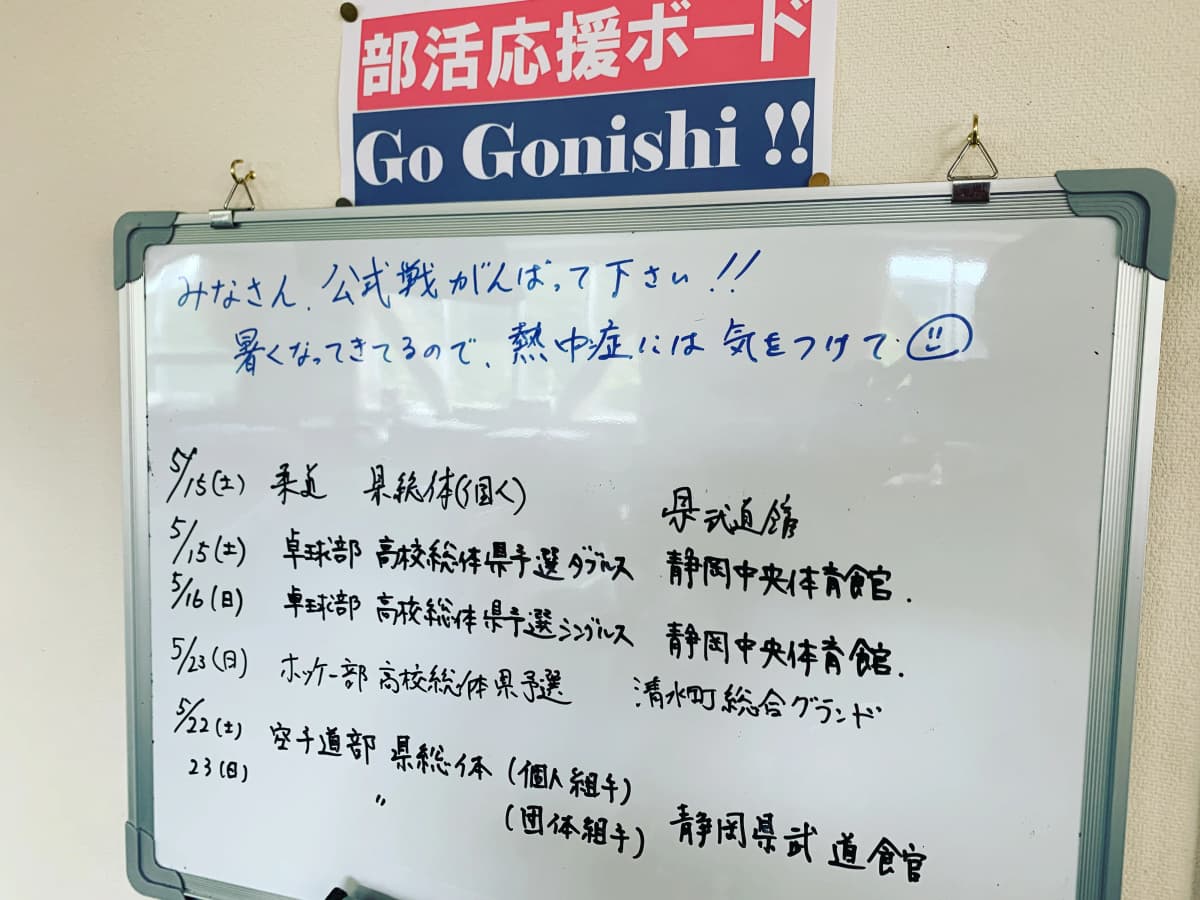 部活応援ボード
Go Gonishi !!
みなさん、公式戦がんばって下さい!!
暑くなってきてるので、熱中症には気をつけて
5/15(土) 柔道 県総体(個人) 県武道館
5/15(土) 卓球部 高校総体県予選ダブルス 静岡中央体育館.
5/16(日) 卓球部 高校総体県予選シングルス 静岡中央体育館.
5/23(日) ホッケー部 高校総体県予選 清水町総合グランド
5/22(土) 空手道部 県総体 (個人組手)
23(日) 〃 (団体組手) 静岡県武道館